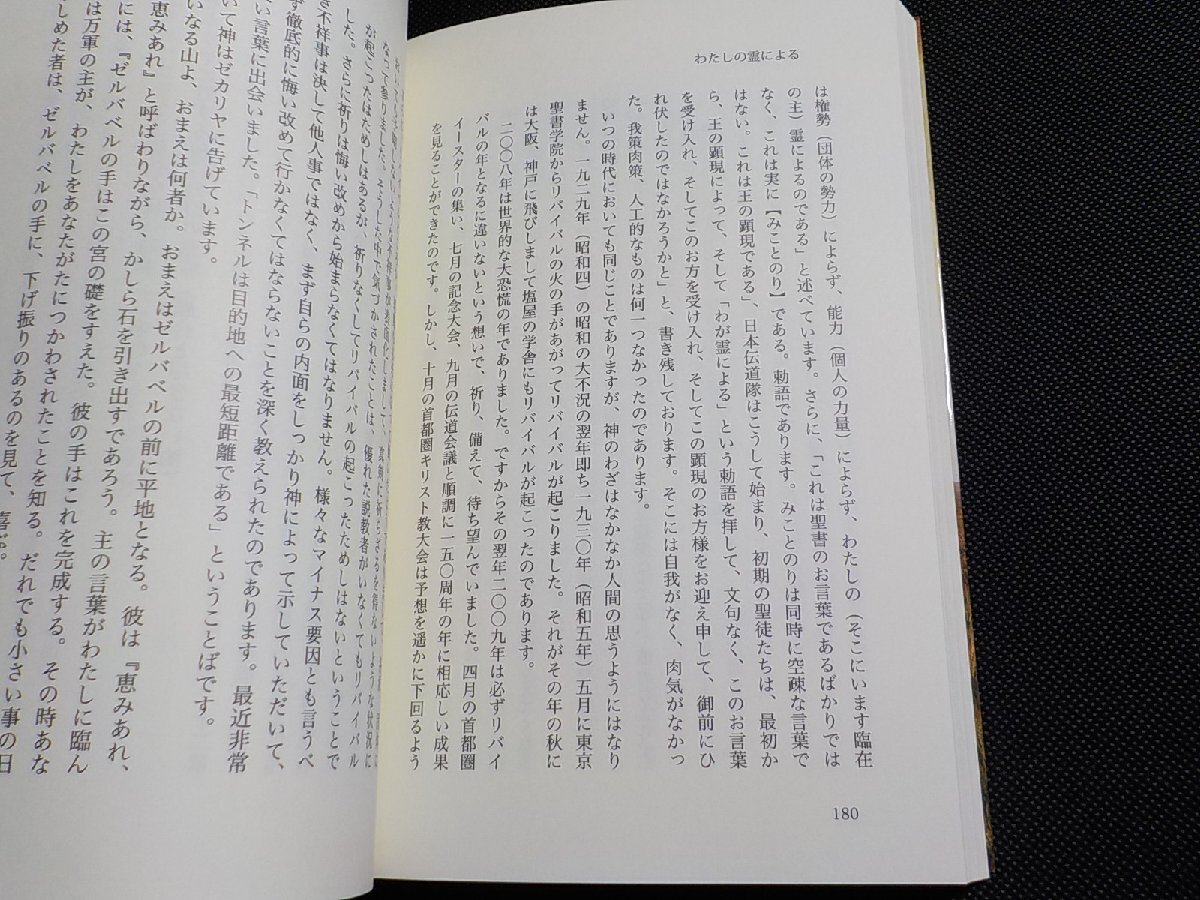 わたしの霊による
は権勢(団体の勢力)によらず、能力(個人の力量)によらず、わたしの(そこにいます臨在
の主)霊によるのである」と述べています。さらに、「これは聖書のお言葉であるばかりでは
なく、これは実に【みことのり】である。勅語であります。みことのりは同時に空疎な言葉で
はない。これは王の顕現である」、日本伝道隊はこうして始まり、初期の聖徒たちは、最初か
ら、王の顕現によって、そして「わが霊による」という勅語を拝して、文句なく、このお言葉
を受け入れ、そしてこのお方を受け入れ、そしてこの顕現のお方様をお迎え申して、御前にひ
れ伏したのではなかろうかと」と、書き残しております。そこには自我がなく、肉気がなかっ
た。我策肉策、人工的なものは何一つなかったのであります。
いつの時代においても同じことでありますが、神のわざはなかなか人間の思うようにはなり
ません。一九二九年(昭和四)の昭和の大不況の翌年即ち一九三〇年(昭和五年)五月に東京
聖書学院からリバイバルの火の手があがってリバイバルが起こりました。それがその年の秋に
は大阪、神戸に飛びしまして塩屋の学舎にもリバイバルが起こったのであります。
二〇〇八年は世界的な大恐慌の年でありました。ですからその翌年二〇〇九年は必ずリバイ
バルの年となるに違いないという想いで、祈り、備えて、待ち望んでいました。四月の首都圏
イースターの集い、七月の記念大会、九月の伝道会議と順調に一五〇周年の年に相応しい成果
を見ることができたのです。しかし、十月の首都圏キリスト教大会は予想を遥かに下回るよう
180
なって参りました。そうした中で気づかされたことは、優れた説教者がいなくてもリバイバル
が起こったためしはあるが、祈りなくしてリバイバルの起こったためしはないということで
した。さらに祈りは悔い改めから始まらなくてはなりません。様々なマイナス要因とも言うべ
き不祥事は決して他人事ではなく、まず自らの内面をしっかり神によって示していただいて、
ず徹底的に悔い改めて行かなくてはならないことを深く教えられたのであります。最近非常
い言葉に出会いました。「トンネルは目的地への最短距離である」ということばです。
いて神はゼカリヤに告げています。
いなる山よ、おまえは何者か。おまえはゼルバベルの前に平地となる。彼は『恵みあれ、
恵みあれ』と呼ばわりながら、かしら石を引き出すであろう。主の言葉がわたしに臨ん
には、『ゼルバベルの手はこの宮の礎をすえた。彼の手はこれを完成する。その時あな
は万軍の主が、わたしをあなたがたにつかわされたことを知る。だれでも小さい事の日
しめた者は、ゼルバベルの手に、下げ振りのあるのを見て、喜ぶ。